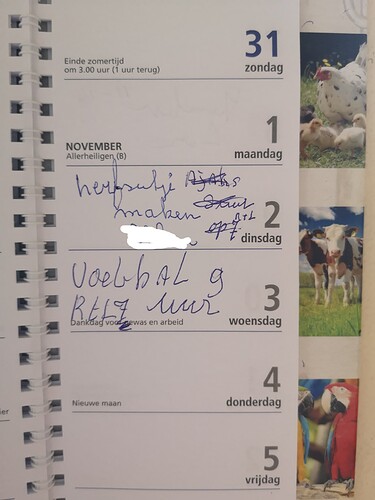 31
Einde zomertijd
om 3.00 uur (1 uur terug)
zondag
1
NOVEMBER
Allerheiligen (B)
maandag
maken
2
dinsdag
Voetbal 9
RTL7 uur
3
Dankdag voor gewas en arbeid
woensdag
4
Nieuwe maan
donderdag
5
vrijdag